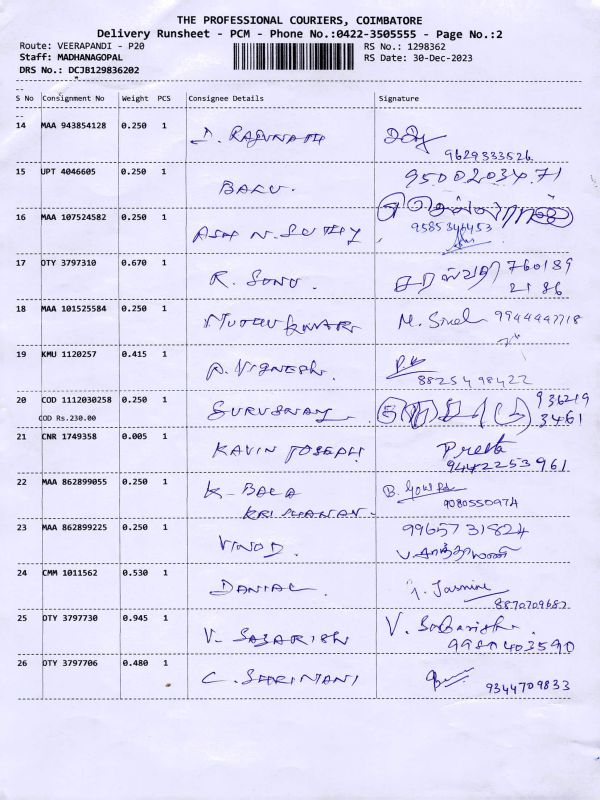 THE PROFESSIONAL COURIERS, COIMBATORE
Delivery Runsheet - PCM - Phone No.:0422-3505555 - Page No.:2
Route: VEERAPANDI - P20 RS No.: 1298362
Staff: MADHANAGOPAL RS Date: 30-Dec-2023
DRS No.: DCJB129836202
--
S No Consignment No Weight PCS Consignee Details Signature
--
14 MAA 943854128 0.250 1 D. RAGUNATH
9629333526
15 UPT 4046605 0.250 1 BALU. 9500203471
16 MAA 107524582 0.250 1 ASH N. 9585346453
17 OTY 3797310 0.670 1 R. SONU. 760189
2186
18 MAA 101525584 0.250 1 MUTHUKUMAR M. 9944447718
19 KMU 1120257 0.415 1 P. VIGNESH.
8825498422
20 COD 1112030258 0.250 1 936219
COD Rs.230.00 3461
21 CNR 1749358 0.005 1 KAVIN JOSEPH. Preeta
9442253961
22 MAA 862899055 0.250 1 K- BALA B.
KRISHANAN. 9080550974
23 MAA 862899225 0.250 1 VINOD. 9965731824
24 CMM 1011562 0.530 1 DANIAL Jasmine
8870709687
25 OTY 3797730 0.945 1 V- SABARISH V.
9980403590
26 OTY 3797706 0.480 1 C.
9344709833